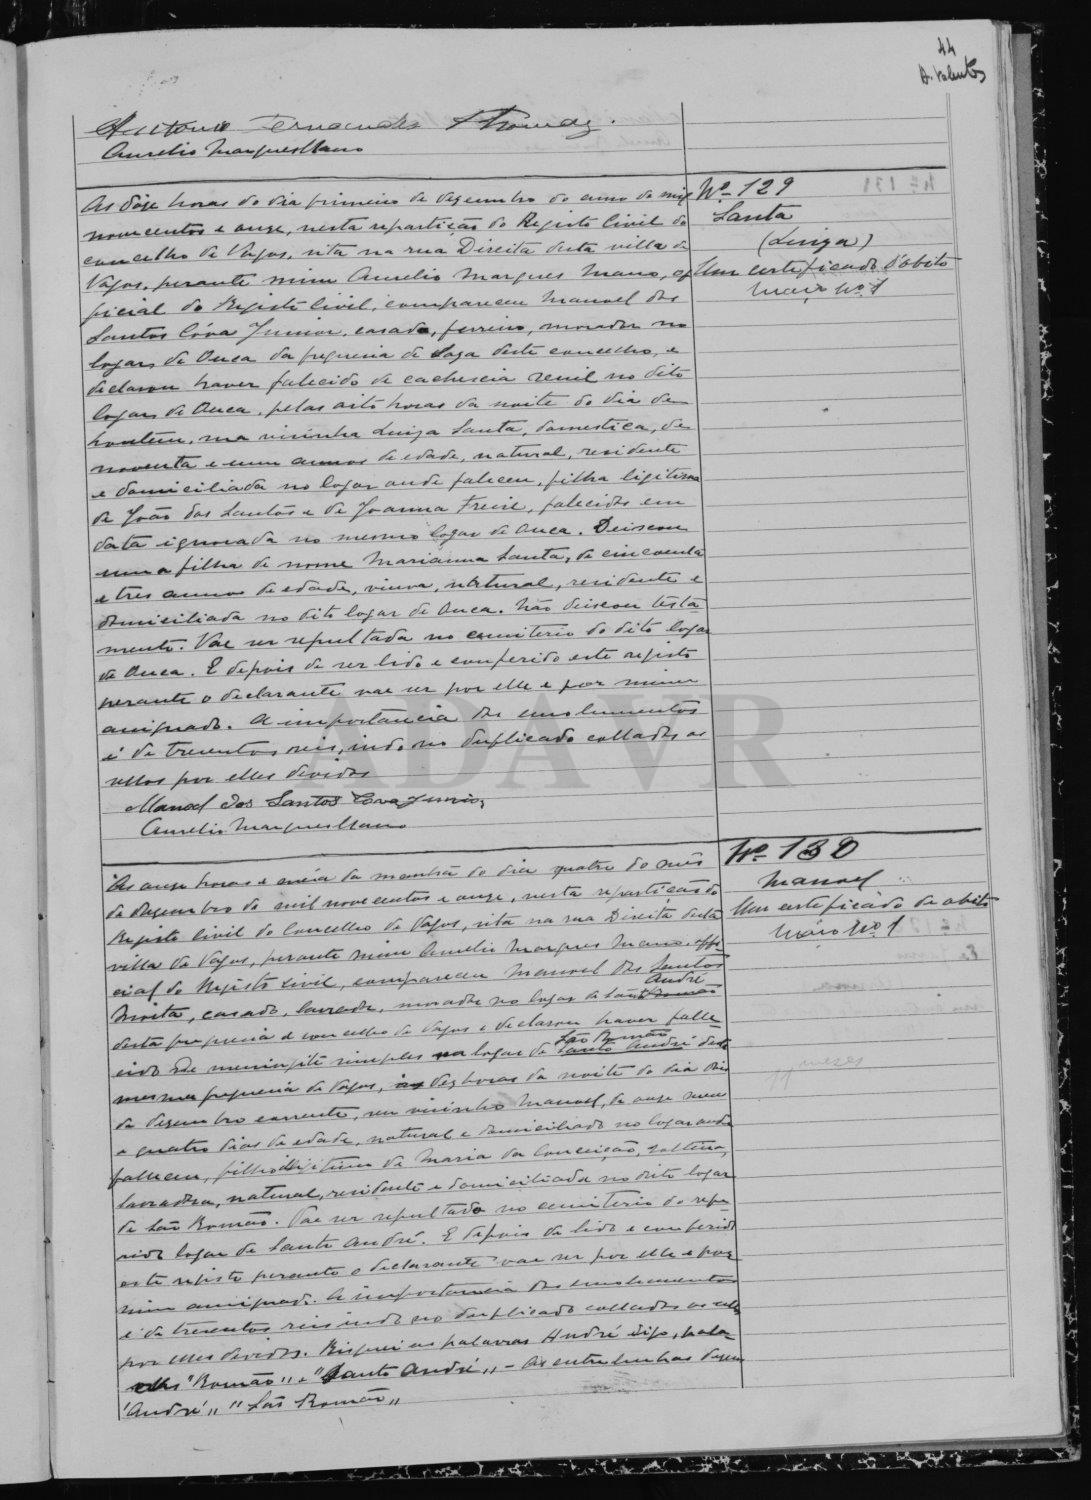 44
A. Valente
Antonio Fernandes Thomaz.
Aurelio Marques Mano
Nº 129
Santa
(Luiza)
Um certeficado d'obito
maço nº 1
As doze horas do dia primeiro de dezembro do anno de mil
novecentos e onze, nesta repartição do Registo Civil do
concelho de Vagos, sita na rua Direita desta villa de
Vagos, perante mim Aurelio Marques Mano, of
ficial do Registo Civil, compareceu Manoel dos
Santos Cóva Junior, casado, ferreiro, morador no
logar de Ouca da freguesia de Soza deste concelho, e
declarou haver falecido de cachexia senil no dito
logar de Ouca, pelas oito horas da noite do dia de
hontem, sua visinha Luiza Santa, domestica, de
noventa e um annos de edade, natural, residente
e domiciliada no logar onde faleceu, filha ligitima
de João dos Santos e de Joanna Freire, falecidos em
data ignorada no mesmo logar de Ouca. Deixou
uma filha de nome Marianna Santa, de cincoenta
e tres annos de edade, viuva, natural, residente e
domiciliada no dito logar de Ouca. Não deixou testa-
mento. Vae ser sepultada no cemiterio do dito logar
de Ouca. E depois de ser lido e conferido este registo
perante o declarante vae ser por elle e por mim
assignado. A importancia dos emolumentos
é de trezentos reis, indo no duplicado collados os
sellos por elles devidos
Manoel dos Santos Cova Junior,
Aurelio Marques Mano
Nº 130
Manoel
Um certeficado de obito
Maço nº 1
As onze horas e meia da manhã do dia quatro do mês
de dezembro de mil novecentos e onze, nesta repartição do
Registo Civil do Concelho de Vagos, sita na rua Direita desta
villa de Vagos, perante mim Aurelio Marques Mano, offi-
cial do Registo Civil, compareceu Manoel dos Santos
André
Moita, casado, lavrador, morador no logar de Santo Romão
desta freguesia e concelho de Vagos e declarou haver falle-
São Romão
cido de meningite simples no logar de Santo André desta
mesma freguesia de Vagos, ás dez horas da noite do dia dois
de dezembro corrente, seu visinho Manoel, de onze meses
e quatro dias de edade, natural e domiciliado no logar onde
faleceu, filho illigitimo de Maria da Conceição, solteira,
lavradora, natural, residente e domiciliada no dito logar
de São Romão. Vae ser sepultado no cemiterio do refe-
rido logar de Santo André. E depois de lido e conferido
este registo perante o declarante vae ser por elle e por
mim assignado. A importancia dos emolumentos
é de trezentos reis indo no duplicado collados os sellos
por elles devidos. Risquei as palavras André digo, pala-
vras "Romão" e "Santo André" - As entrelinhas dizem
"André" "São Romão"
11 meses
ADAVR